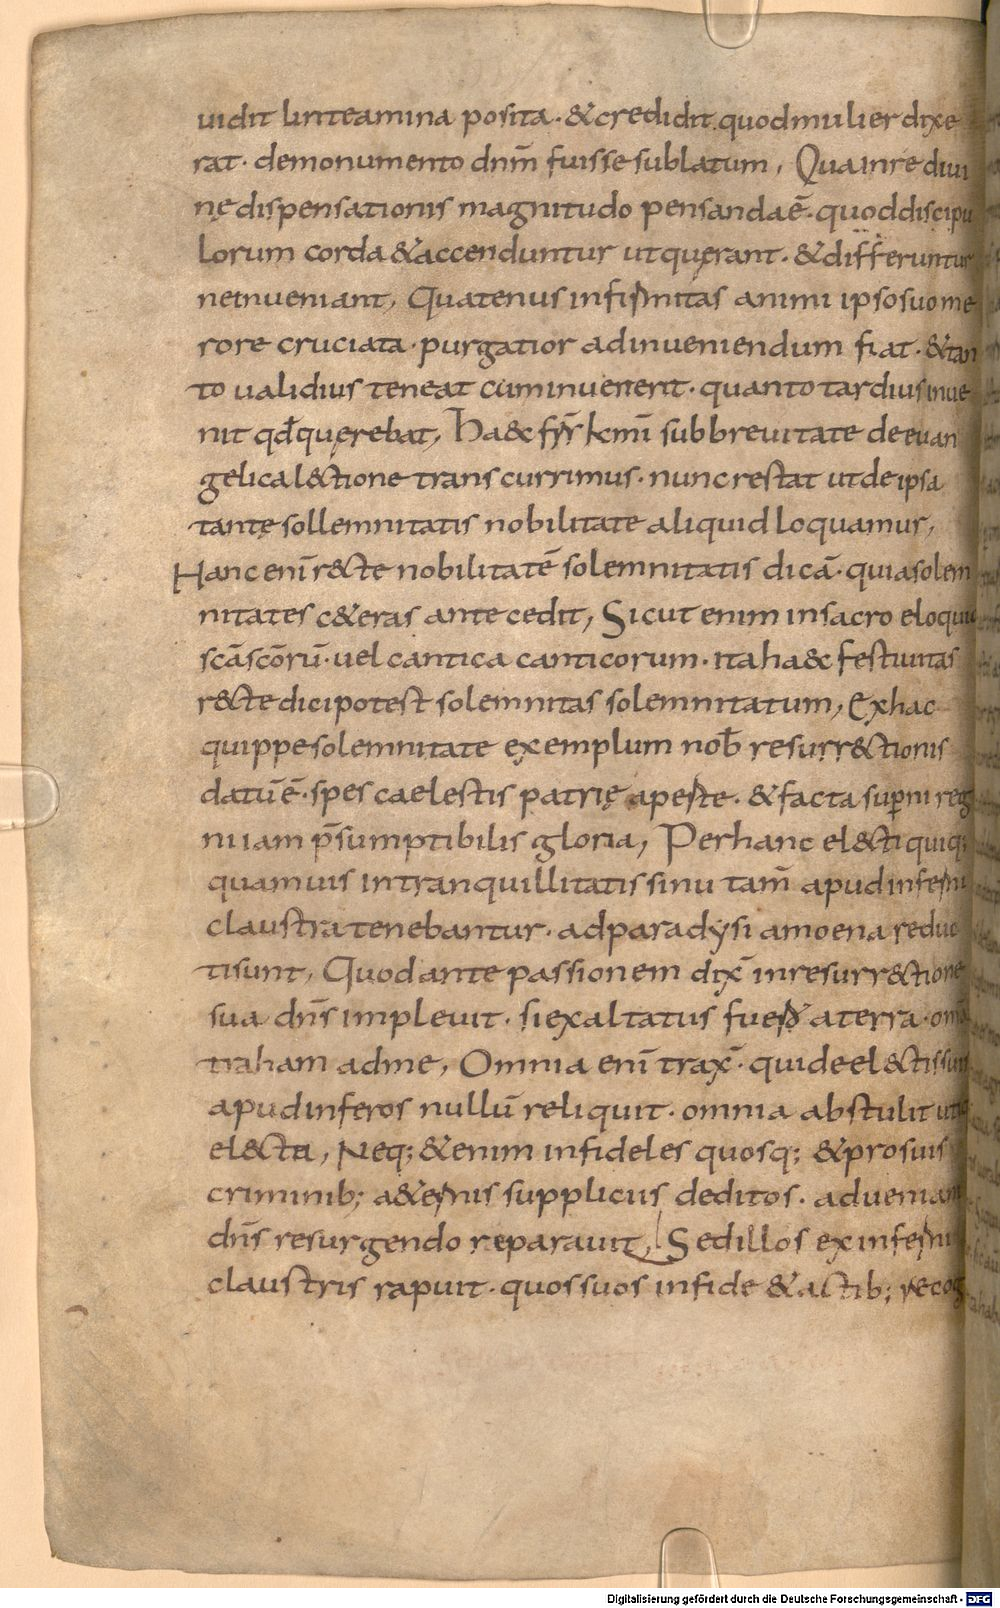 uidit linteamina posita · & credidit quod mulier dixe
rat · de monumento dnm̄ fuisse sublatum, Qua in re diui
nę dispensationis magnitudo pensanda ē · quod discipu
lorum corda & accenduntur ut quęrant · & differuntur
ne inueniant, Quatenus infirmitas animi ipso suo me
rore cruciata · purgatior ad inueniendum fiat · & tan
to ualidius teneat cum inuenerit · quanto tardius inue
nit qđ quęrebat, Ha&c fr̄r̄ kmi̅ sub breuitate de euan
gelica l&ctione transcurrimus · nunc restat ut de ipsa
tantę sollemnitatis nobilitate aliquid loquamur,
Hanc eni̅ r&cte nobilitatē solemnitatis dicā · quia solem
nitates c&eras antecedit, Sicut enim in sacro eloquio
scā scōrū · uel cantica canticorum · ita ha&c festiuitas
r&cte dici potest solemnitas solemnitatum, Ex hac
quippe solemnitate exemplum nob̄ resurr&ctionis
datū ē · spes caelestis patrię aperte · & facta sup̄ni reg
ni iam p̄sumptibilis gloria, Per hanc el&cti quiq;
quamuis in tranquillitatis sinu tam̄ apud inferni
claustra tenebantur · ad paradysi amoena reduc
ti sunt, Quod ante passionem dix̄ in resurr&ctione
sua dn̄s impleuit · si exaltatus fuero a terra · om̄a
traham ad me, Omnia eni̅ trax̄ · qui de el&ctis suis
apud inferos nullū reliquit · omnia abstulit utiq;
el&cta, Neq; &enim infideles quosq; & pro suis
criminib; a&ernis suppliciis deditos · ad ueniam
dn̄s resurgendo reparauit, Sed illos ex inferni
claustris rapuit · quos suos in fide & actib; recog
Digitalisierung gefördert durch die Deutsche Forschungsgemeinschaft - DFG